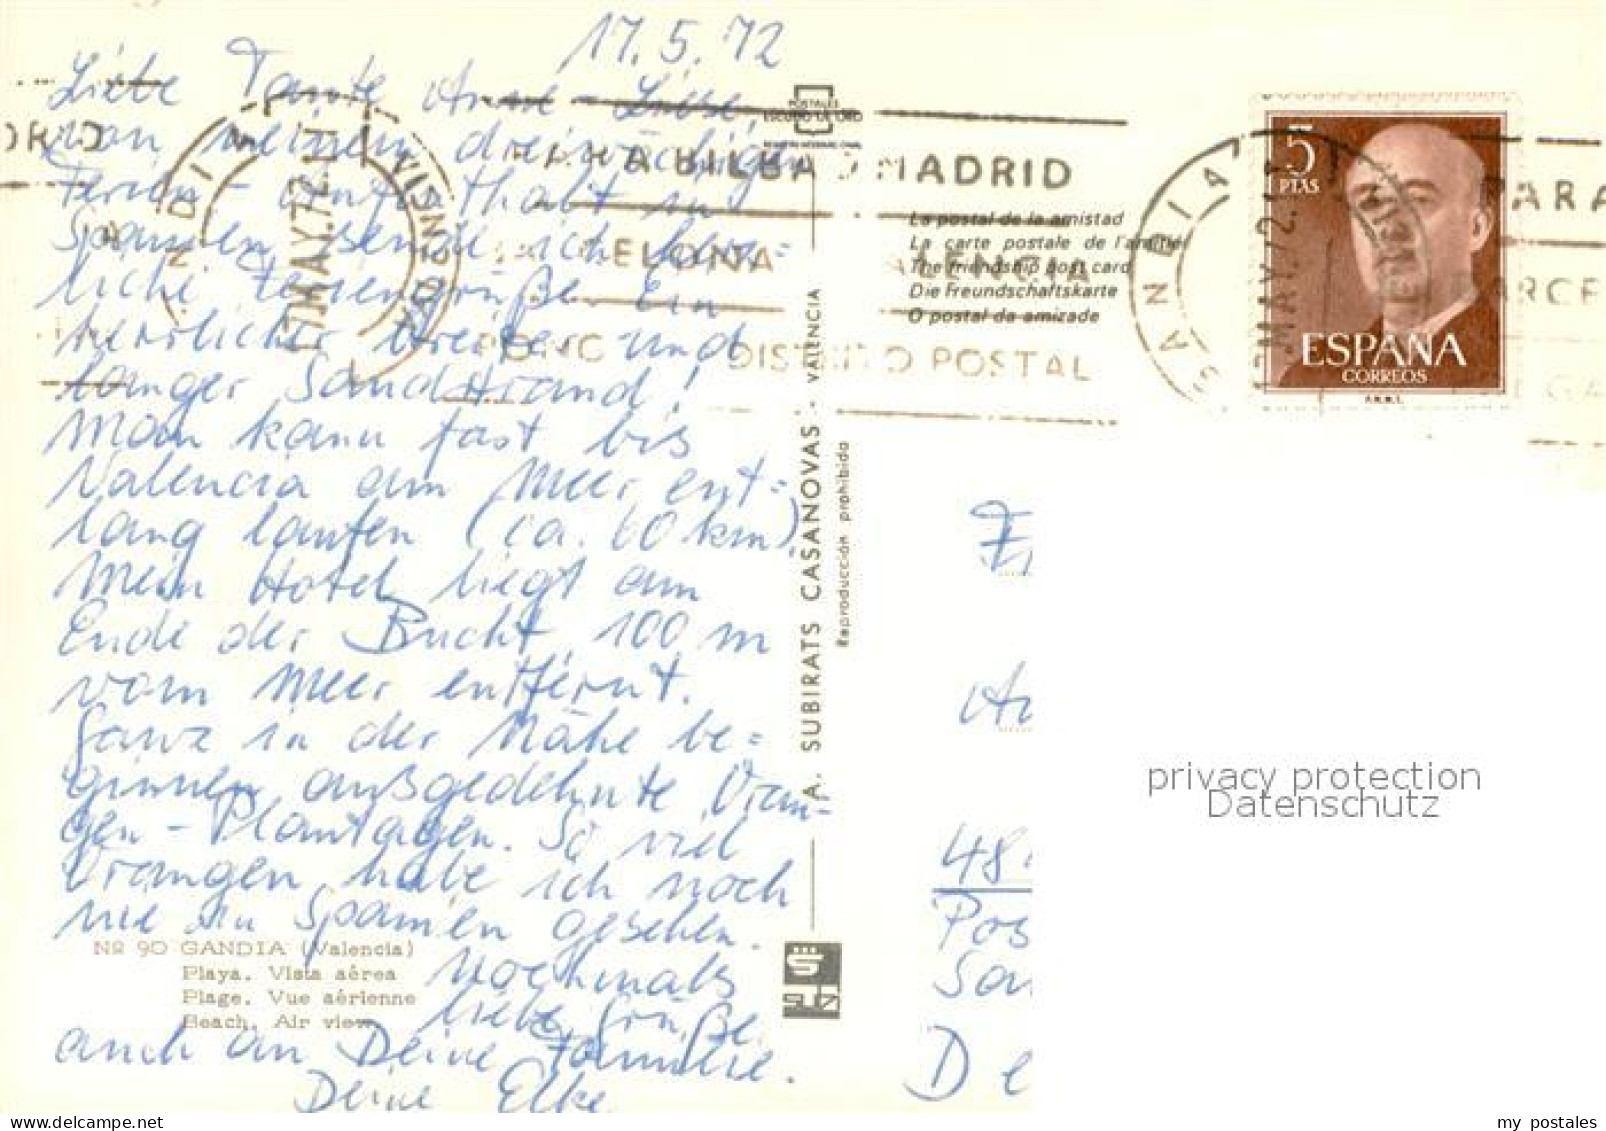 17.5.72
Liebe Tante Anne-Liese,
von meinem dreiwöchigen
Ferien-Aufenthalt in
Spanien sende ich herz=
liche Feriengrüße. Ein
herrlicher breiter und
langer Sandstrand!
Man kann fast bis
Valencia am Meer ent=
lang laufen (ca. 60 km).
Mein Hotel liegt am
Ende der Bucht, 100 m
vom Meer entfernt.
Ganz in der Nähe be=
ginnen außgedehnte Oran-
gen-Plantagen. So viel
Orangen habe ich noch
nie in Spanien gesehen.
Nochmals
liebe Grüße
auch an Deine Familie.
Deine Elke
Nº 90 GANDIA (Valencia)
Playa. Vista aérea
Plage. Vue aérienne
Beach. Air view
POSTALES
ESCUDO DE ORO
A. SUBIRATS CASANOVAS - VALENCIA
Reproducción prohibida
La postal de la amistad
La carte postale de l'amitié
The friendship post card
Die Freundschaftskarte
O postal da amizade
BILBAO MADRID
DISTRITO POSTAL
17 MAY. 72
GANDIA
5
PTAS
ESPAÑA
CORREOS
F.N.M.T.
48
Pos
De
privacy protection
Datenschutz
my postales